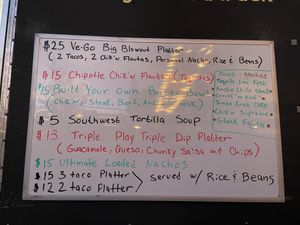 $25 Ve-Go Big Blowout Platter
(2 Tacos, 2 Chik'n Flautas, Personal Nacho, Rice & Beans)
$15 Chipotle Chik'n Flautas
$15 Build Your Own Burrito Bowl
(Chik'n, Steak, Beef, And
$5 Southwest Tortilla Soup
$13 Triple Play Triple Dip Platter
(Guacamole, Queso, Chunky Salsa and Chips)
$15 Ultimate Loaded Nachos
$15 3 taco Platter
$12 2 taco Platter
served w/ Rice & Beans
Tacos - Nachos
Tequila Lime
Ancho Chip Steak
Chik'n Supreme
Steak Fajita